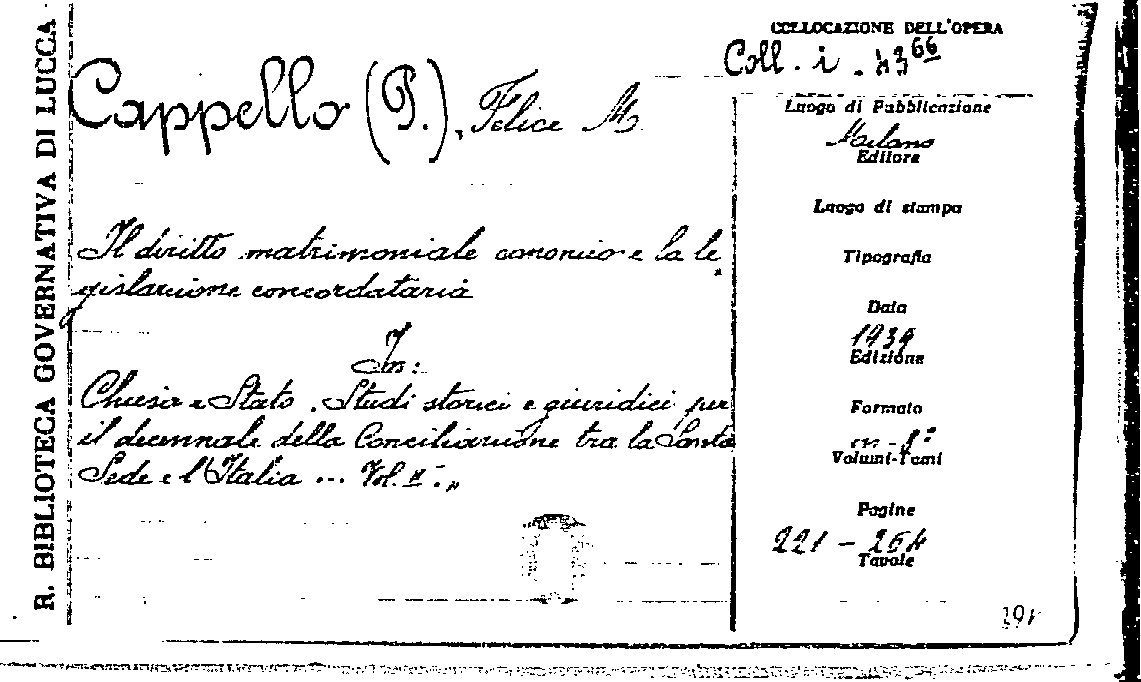 R. BIBLIOTECA GOVERNATIVA DI LUCCA
Cappello (P.), Felice M.
Il diritto matrimoniale canonico e la le
gislazione concordataria
In:
Chiesa e Stato. Studi storici e giuridici per
il decennale della Conciliazione tra la Santa
Sede e l'Italia ... Vol. II°.,
COLLOCAZIONE DELL'OPERA
Coll. i. 43⁶⁶
Luogo di Pubblicazione
Milano
Editore
Luogo di stampa
Tipografia
Data
1939
Edizione
Formato
in-8°
Volumi-Tomi
Pagine
221 - 264
Tavole